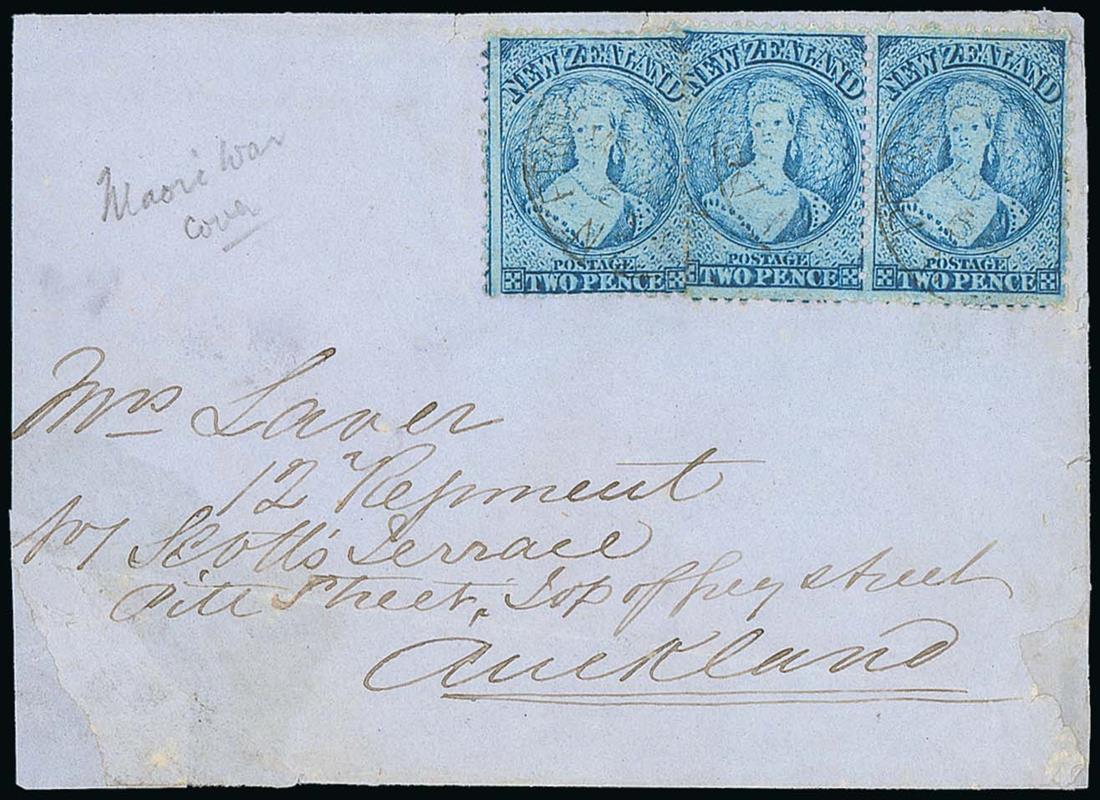 NEW ZEALAND
POSTAGE
TWO PENCE
NEW ZEALAND
POSTAGE
TWO PENCE
NEW ZEALAND
POSTAGE
TWO PENCE
Maori War
cover
Mrs Laver
12 Regiment
No 1 Scott's Terrace
Pitt Street, Top of Grey street
Auckland